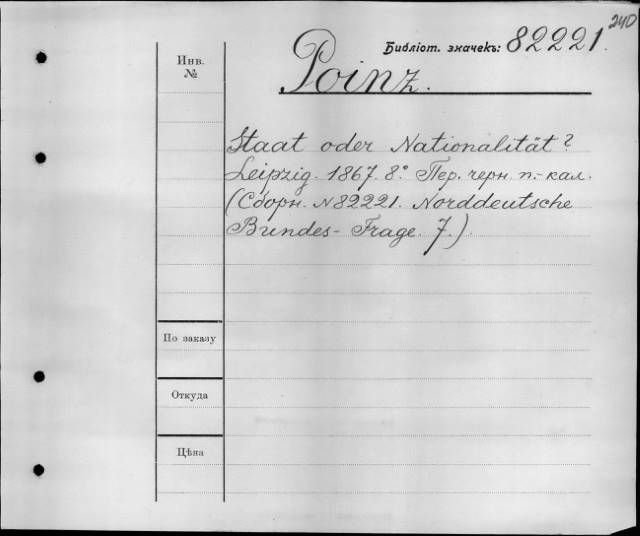 240
Библіот. значекъ: 82221.
Инв.
№
Poinz.
Staat oder Nationalität?
Leipzig. 1867. 8.° Пер. черн. п.-кал.
(Сборн. №82221. Norddeutsche
Bundes- Frage. 7.)
По заказу
Откуда
Цѣна